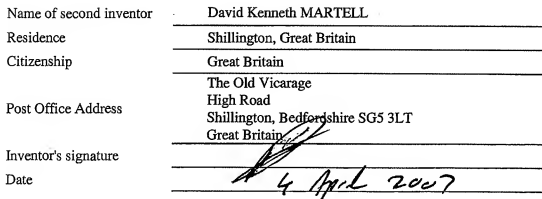 Name of second inventor David Kenneth MARTELL
Residence Shillington, Great Britain
Citizenship Great Britain
The Old Vicarage
High Road
Post Office Address
Shillington, Bedfordshire SG5 3LT
Great Britain
Inventor's signature
Date 4 April 2007